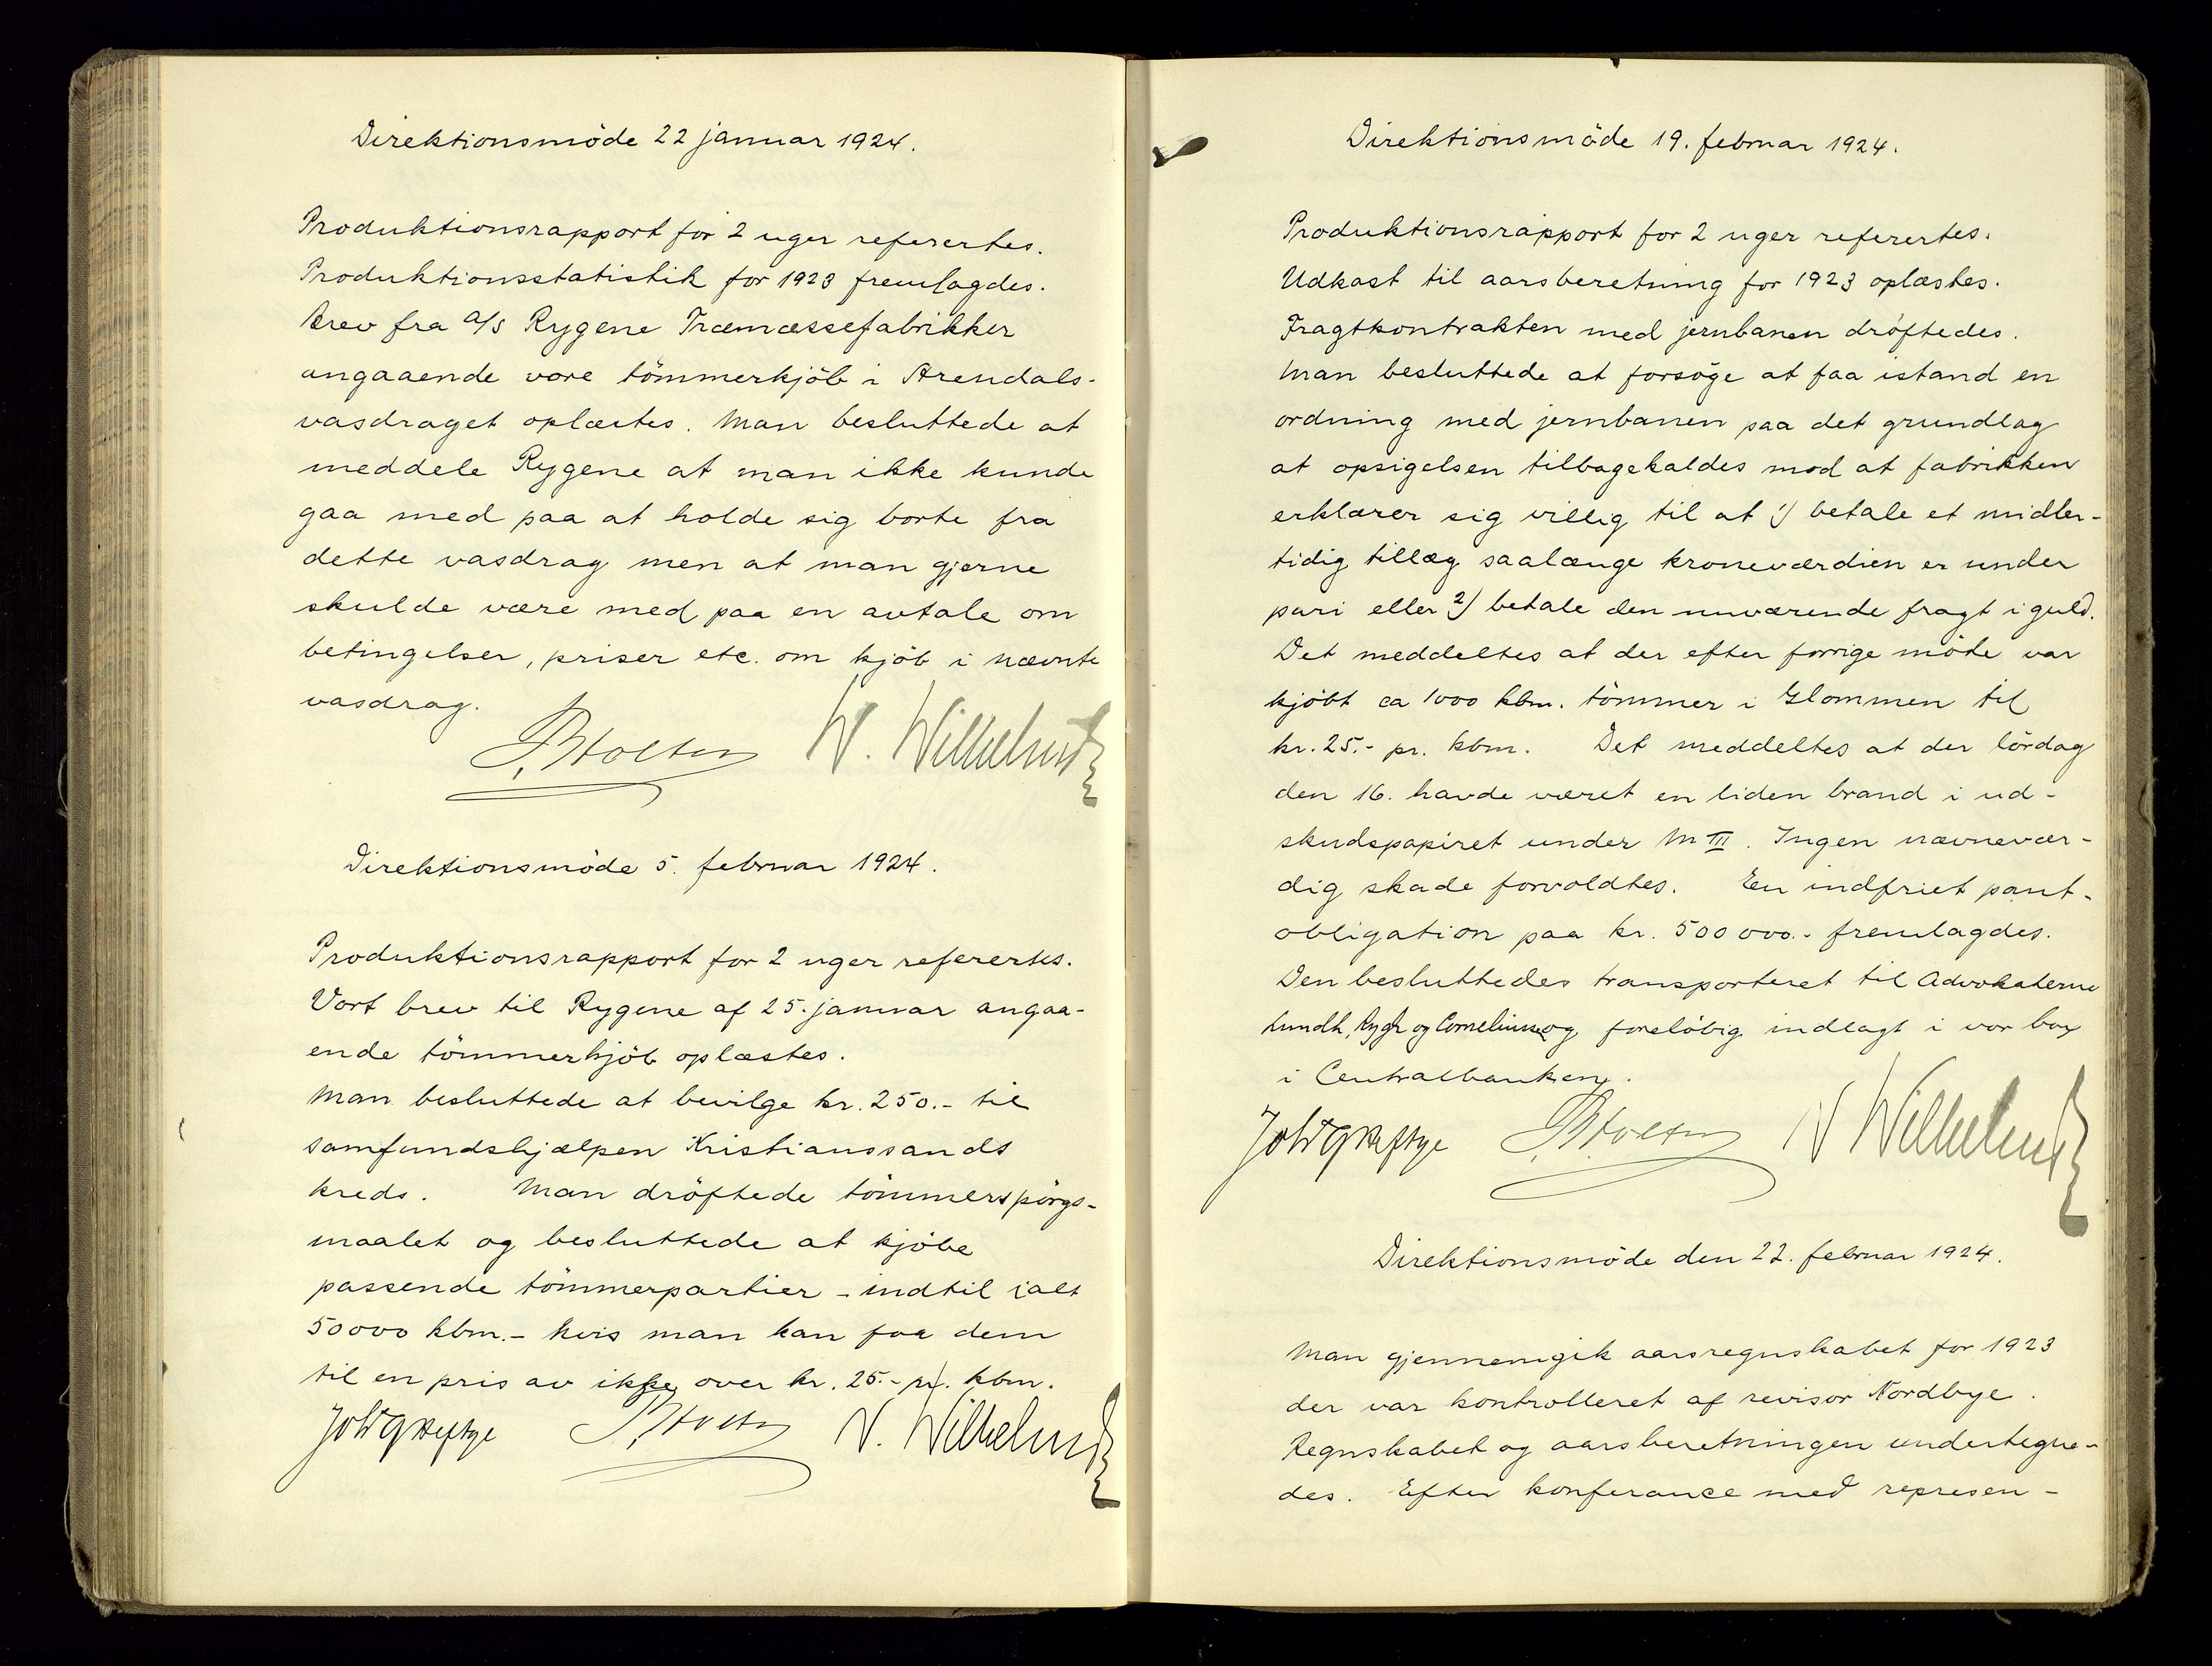 Direktionsmöde 22 januar 1924.
Produktionsrapport for 2 uger referertes.
Produktionsstatistik for 1923 fremlagdes.
Brev fra A/S Rygene Træmassefabrikker
angaaende vore tömmerkjöb i Arendals-
vasdraget oplæstes. Man besluttede at
meddele Rygene at man ikke kunde
gaa med paa at holde sig borte fra
dette vasdrag men at man gjerne
skulde være med paa en avtale om
betingelser, priser etc. om kjöb i nævnte
vasdrag.
W. Wilhelmsen
Direktionsmöde 5. februar 1924.
Produktionsrapport for 2 uger referertes.
Vort brev til Rygene af 25. januar angaa-
ende tömmerkjöb oplæstes.
Man besluttede at bevilge kr. 250.- til
samfundshjælpen Kristianssands
kreds. Man dröftede tömmerspörgs-
maalet og besluttede at kjöbe
passende tömmerpartier - indtil ialt
50000 kbm. - hvis man kan faa dem
til en pris av ikke over kr. 25.- pr. kbm.
Direktionsmöde 19. februar 1924.
Produktionsrapport for 2 uger referertes.
Udkast til aarsberetning for 1923 oplæstes.
Fragtkontrakten med jernbanen dröftedes.
Man besluttede at forsöge at faa istand en
ordning med jernbanen paa det grundlag
at opsigelsen tilbagekaldes mod at fabrikken
erklærer sig villig til at 1) betale et midler-
tidig tillæg saalænge kroneværdien er under
pari eller 2) betale den nuværende fragt i guld.
Det meddeltes at der efter forrige möde var
kjöbt ca 1000 kbm. tömmer i Glommen til
kr. 25.- pr. kbm. Det meddeltes at der lördag
den 16. havde været en liden brand i ud-
skudspapiret under M III. Ingen nævnevær-
dig skade forvoldtes. En indfriet pant-
obligation paa kr. 500000.- fremlagdes.
Den besluttedes transporteret til Advokaterne
Lundh, Rygh og Cornelius og foreløbig indlagt i vor box
i Centralbanken.
Direktionsmöde den 22. februar 1924.
Man gjennemgik aarsregnskabet for 1923
der var kontrolleret af revisor Nordbye.
Regnskabet og aarsberetningen undertegne-
des. Efter konferance med represen-